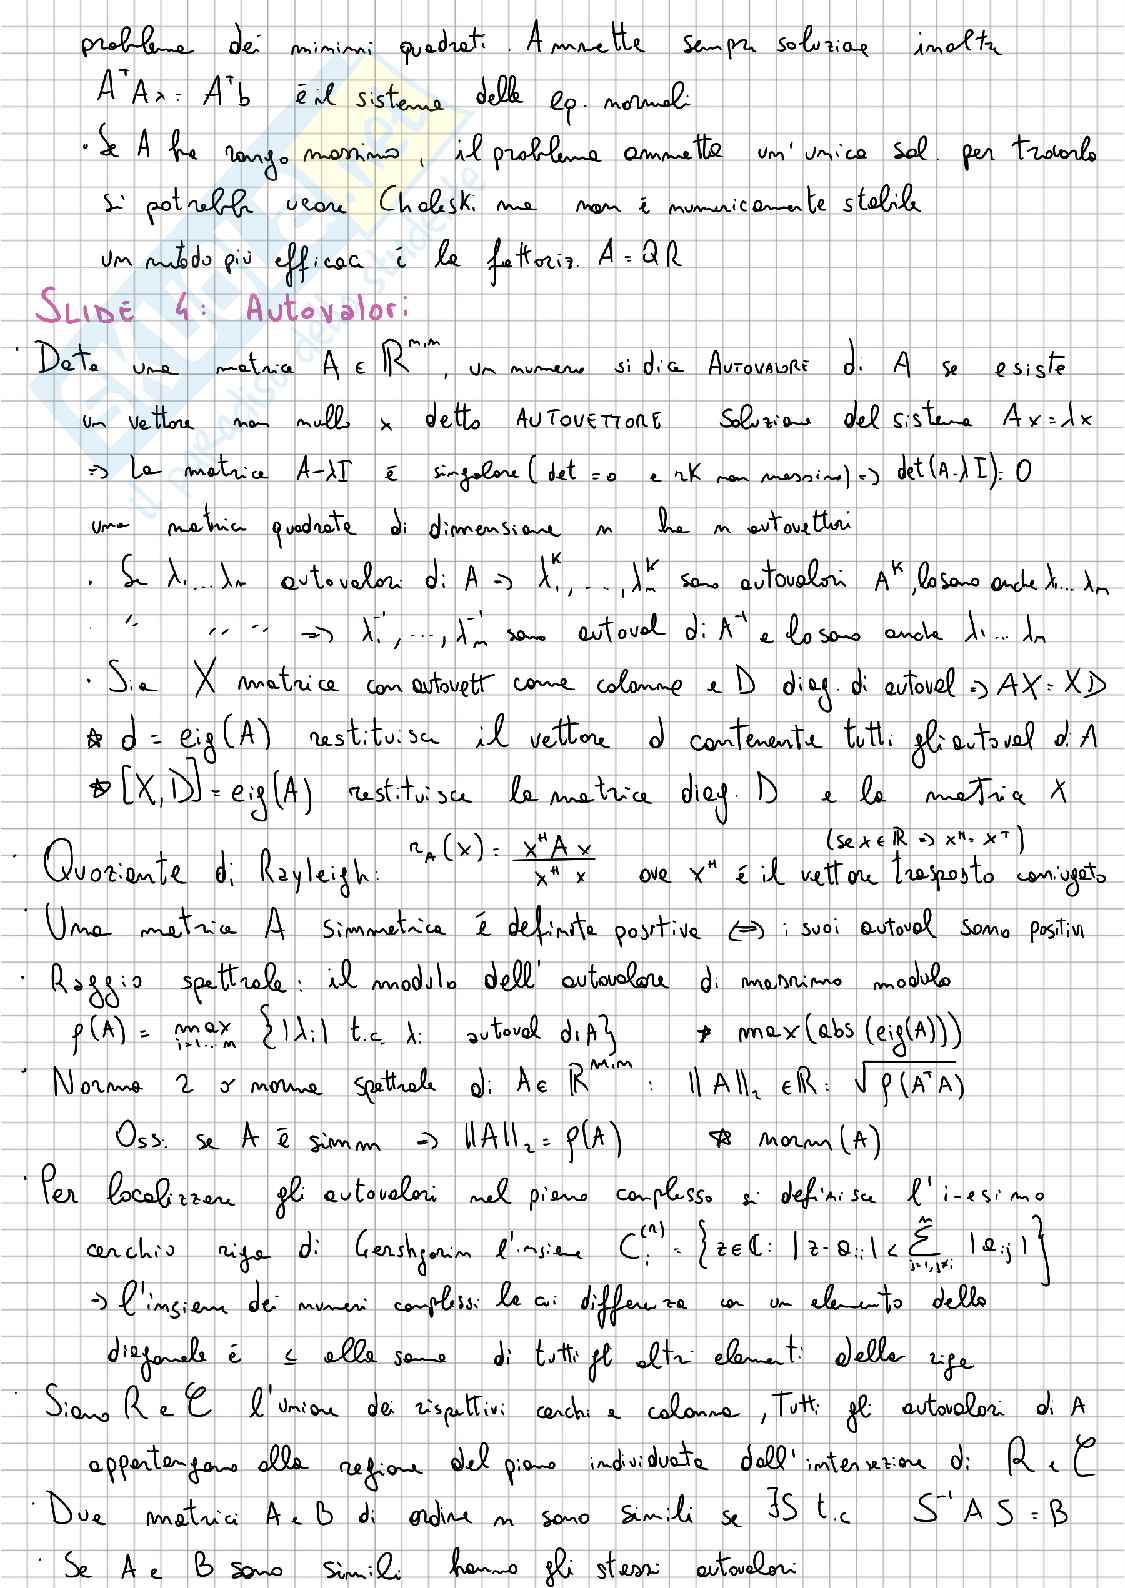 problema dei minimi quadrati. Ammette sempre soluzione inoltre
AᵀAx = Aᵀb è il sistema delle eq. normali
· Se A ha rango massimo, il problema ammette un'unica sol. per trovarla
si potrebbe usare Choleski ma non è numericamente stabile
un metodo più efficace è la fattoriz. A = QR
SLIDE 4: Autovalori
· Data una matrice A ∈ ℝⁿ·ⁿ, un numero si dice AUTOVALORE di A se esiste
un vettore non nullo x detto AUTOVETTORE soluzione del sistema Ax = λx
=> la matrice A-λI è singolare (det = 0 e rk non massimo) => det(A-λI) = 0
una matrice quadrata di dimensione n ha n autovettori
· Se λ₁...λₙ autovalori di A => λ₁ᴷ, ..., λₙᴷ sono autovalori Aᴷ, lo sono anche λ₁...λₙ
" " " => λ₁⁻¹, ..., λₙ⁻¹ sono autoval di A⁻¹ e lo sono anche λ₁...λₙ
· Sia X matrice con autovett come colonne e D diag. di autoval => AX = XD
☆ d = eig(A) restituisce il vettore d contenente tutti gli autoval di A
☆ [X,D] = eig(A) restituisce la matrice diag. D e la matrice X
(se x ∈ ℝ => xᴴ = xᵀ)
· Quoziente di Rayleigh: r_A(x) = xᴴAx / xᴴx ove xᴴ è il vettore trasposto coniugato
· Una matrice A simmetrica è definita positiva <=> i suoi autoval sono positivi
· Raggio spettrale: il modulo dell'autovalore di massimo modulo
ρ(A) = max i=1...n {|λi| t.c. λi autoval di A} * max(abs(eig(A)))
· Norma 2 o norma spettrale di A ∈ ℝᵐ·ⁿ : ||A||₂ ∈ ℝ = √ρ(AᵀA)
Oss. se A è simm => ||A||₂ = ρ(A) ☆ norm(A)
· Per localizzare gli autovalori nel piano complesso si definisce l'i-esimo
cerchio riga di Gershgorin l'insieme Cᵢ⁽ʳ⁾ = {z ∈ ℂ : |z - aᵢᵢ| < Σⁿ j=1, j≠i |aᵢⱼ|}
-> l'insieme dei numeri complessi la cui differenza con un elemento della
diagonale è ≤ alla somma di tutti gli altri elementi della riga
· Siano R e C l'unione dei rispettivi cerchi e colonna, Tutti gli autovalori di A
appartengono alla regione del piano individuata dall'intersezione di R e C
· Due matrici A e B di ordine n sono simili se ∃S t.c S⁻¹AS = B
· Se A e B sono simili hanno gli stessi autovalori